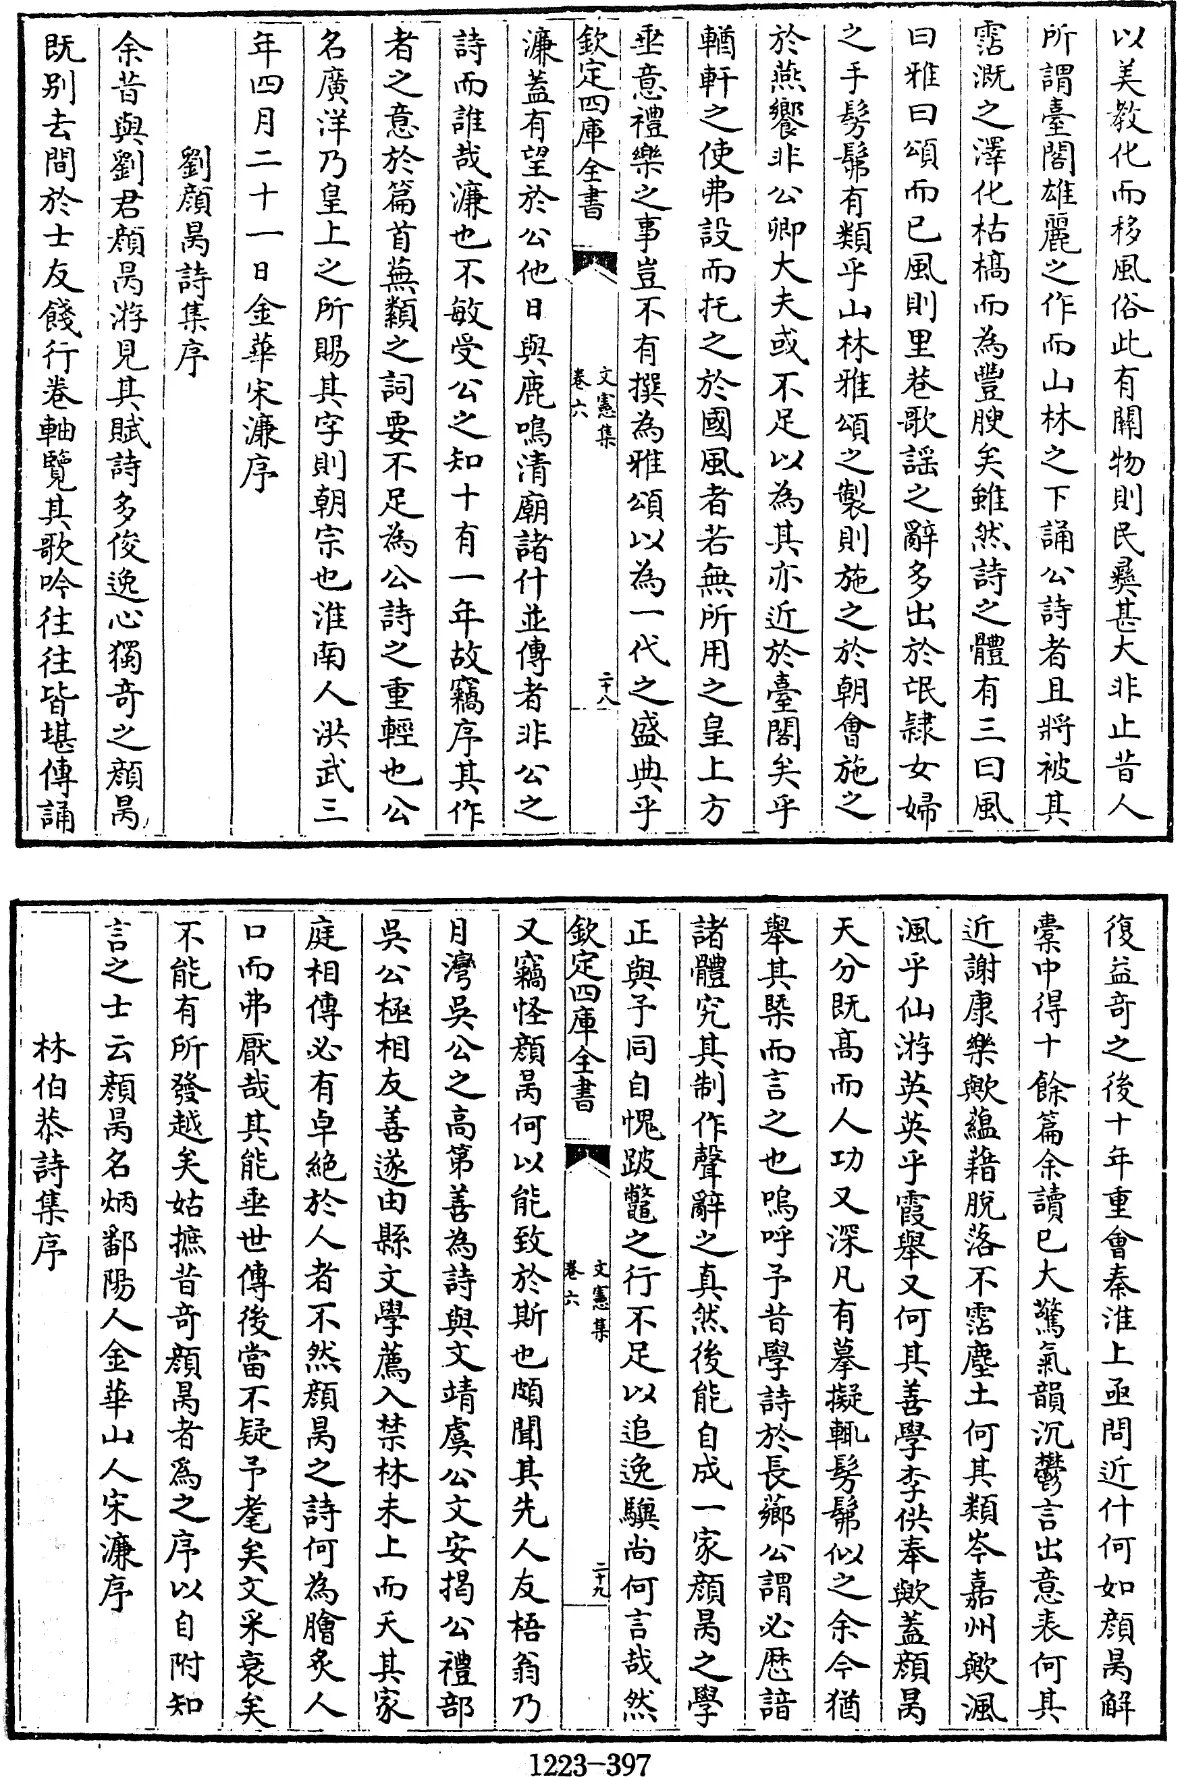 以美教化而移風俗此有關物則民彝甚大非止昔人
所謂臺閣雄麗之作而山林之下誦公詩者且將被其
霑溉之澤化枯槁而為豐腴矣雖然詩之體有三曰風
曰雅曰頌而已風則里巷歌謡之辭多出於氓隸女婦
之手髣髴有類乎山林雅頌之製則施之於朝會施之
於燕饗非公卿大夫或不足以為其亦近於臺閣矣乎
輶軒之使弗設而托之於國風者若無所用之皇上方
垂意禮樂之事豈不有撰為雅頌以為一代之盛典乎
欽定四庫全書
文憲集
卷六
二十八
濂蓋有望於公他日與鹿鳴清廟諸什並傳者非公之
詩而誰哉濂也不敏受公之知十有一年故竊序其作
者之意於篇首蕪纇之詞要不足為公詩之重輕也公
名廣洋乃皇上之所賜其字則朝宗也淮南人洪武三
年四月二十一日金華宋濂序
劉顔昺詩集序
余昔與劉君顔昺游見其賦詩多俊逸心獨奇之顔昺
既别去間於士友餞行卷軸覽其歌吟往往皆堪傳誦
復益奇之後十年重會秦淮上亟問近什何如顔昺解
橐中得十餘篇余讀已大驚氣韻沉鬱言出意表何其
近謝康樂歟藴藉脱落不霑塵土何其類岑嘉州歟渢
渢乎仙游英英乎霞舉又何其善學李供奉歟蓋顔昺
天分既髙而人功又深凡有摹擬輒髣髴似之余今猶
舉其槩而言之也嗚呼予昔學詩於長薌公謂必歴諳
諸體究其制作聲辭之真然後能自成一家顔昺之學
正與予同自愧跛鼈之行不足以追逸驥尚何言哉然
欽定四庫全書
文憲集
卷六
二十九
又竊怪顔昺何以能致於斯也頗聞其先人友梧翁乃
月灣吳公之高第善為詩與文靖虞公文安揭公禮部
吳公極相友善遂由縣文學薦入禁林未上而夭其家
庭相傳必有卓絶於人者不然顔昺之詩何為膾炙人
口而弗厭哉其能垂世傳後當不疑予耄矣文采衰矣
不能有所發越矣姑摭昔奇顔昺者爲之序以自附知
言之士云顔昺名炳鄱陽人金華山人宋濂序
林伯恭詩集序
1223-397